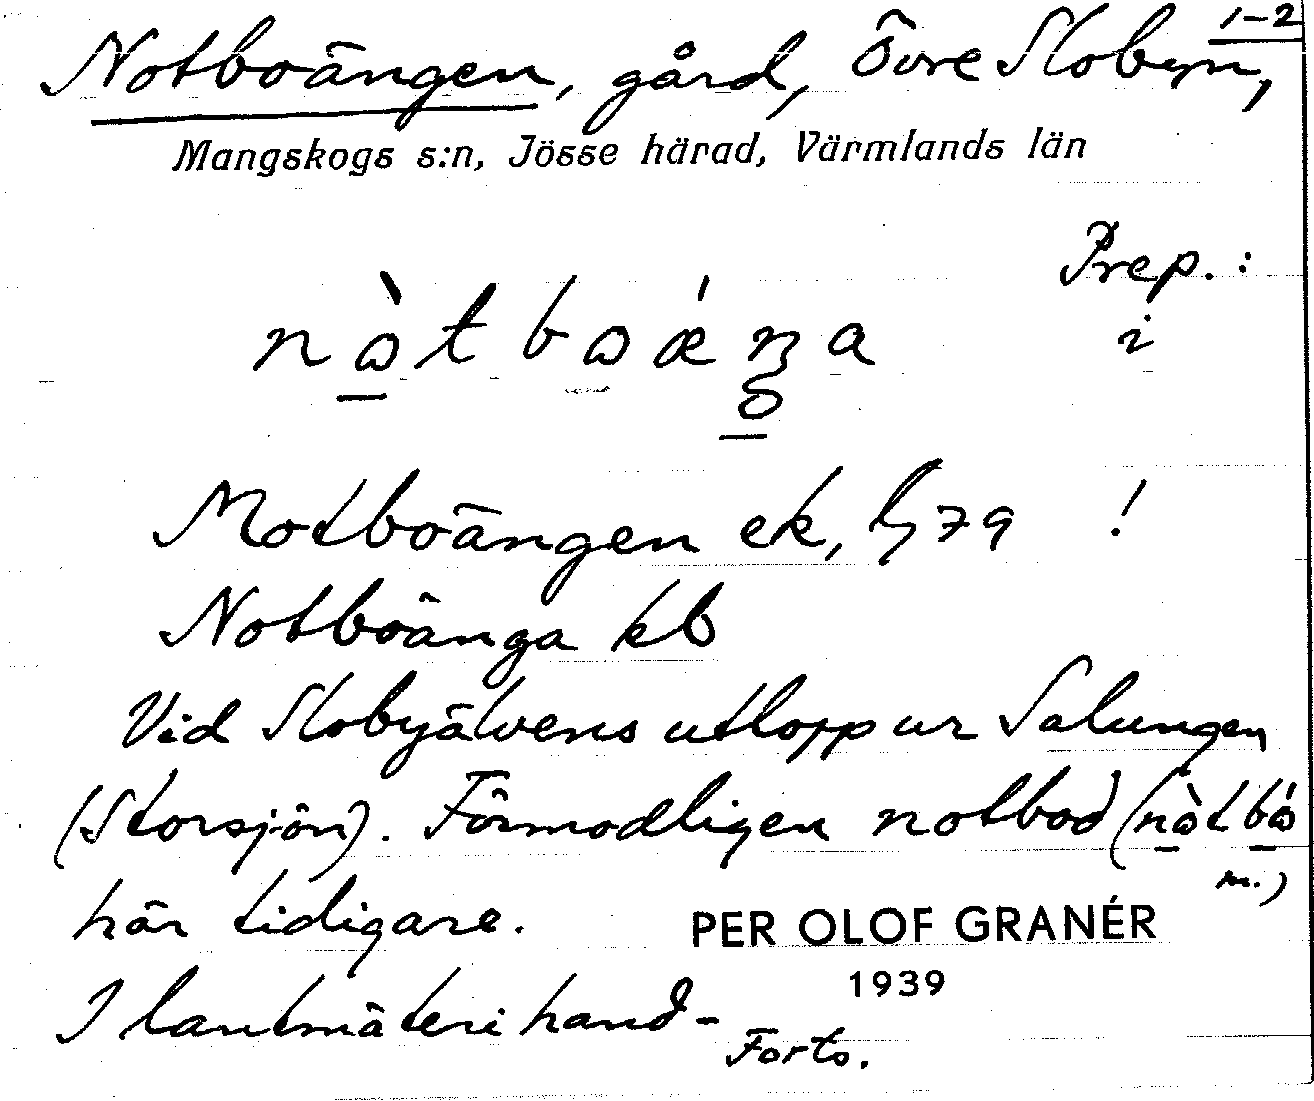 1-2
Notboängen, gård, Övre Slobyn,
Mangskogs s:n, Jösse härad, Värmlands län
Prep.:
i
Motboängen ek, 79 !
Notboänga kb
Vid Slobyälvens utlopp ur Salungen
(Storsjön). Förmodligen notbod
m.)
här tidigare.
PER OLOF GRANÉR
1939
I lantmäterihand-
Forts.